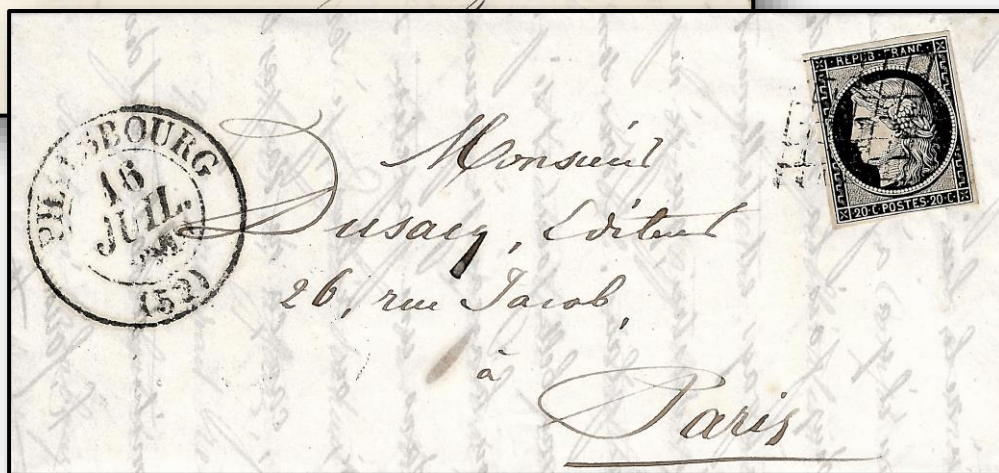 PHALSBOURG
16
JUIL.
(52)
REPUB·FRANC·
20·C·POSTES·20·C·
Monsieur
Dusacq, Editeur
26, rue Jacob,
à
Paris